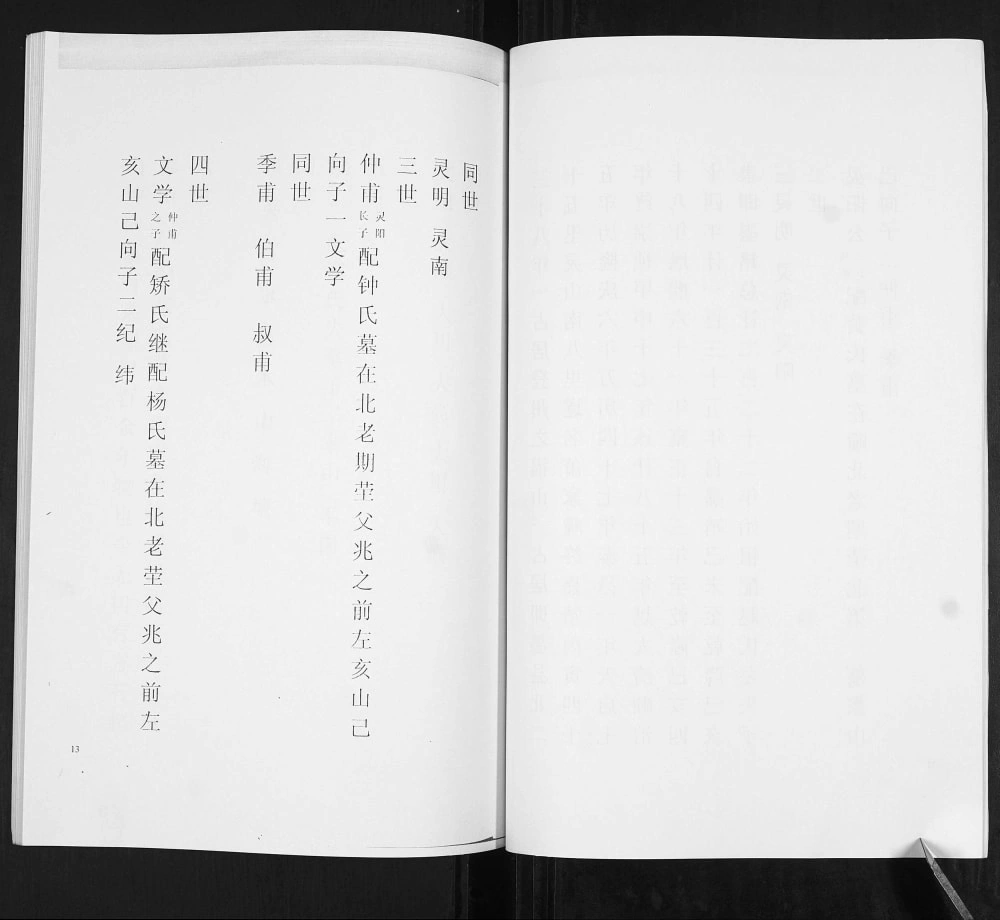 同世
灵明 灵南
三世
仲甫灵阳长子配钟氏墓在北老期茔父兆之前左亥山己
向子一文学
同世
季甫 伯甫 叔甫
四世
文学仲甫之子配矫氏继配杨氏墓在北老茔父兆之前左
亥山己向子二纪 纬
13